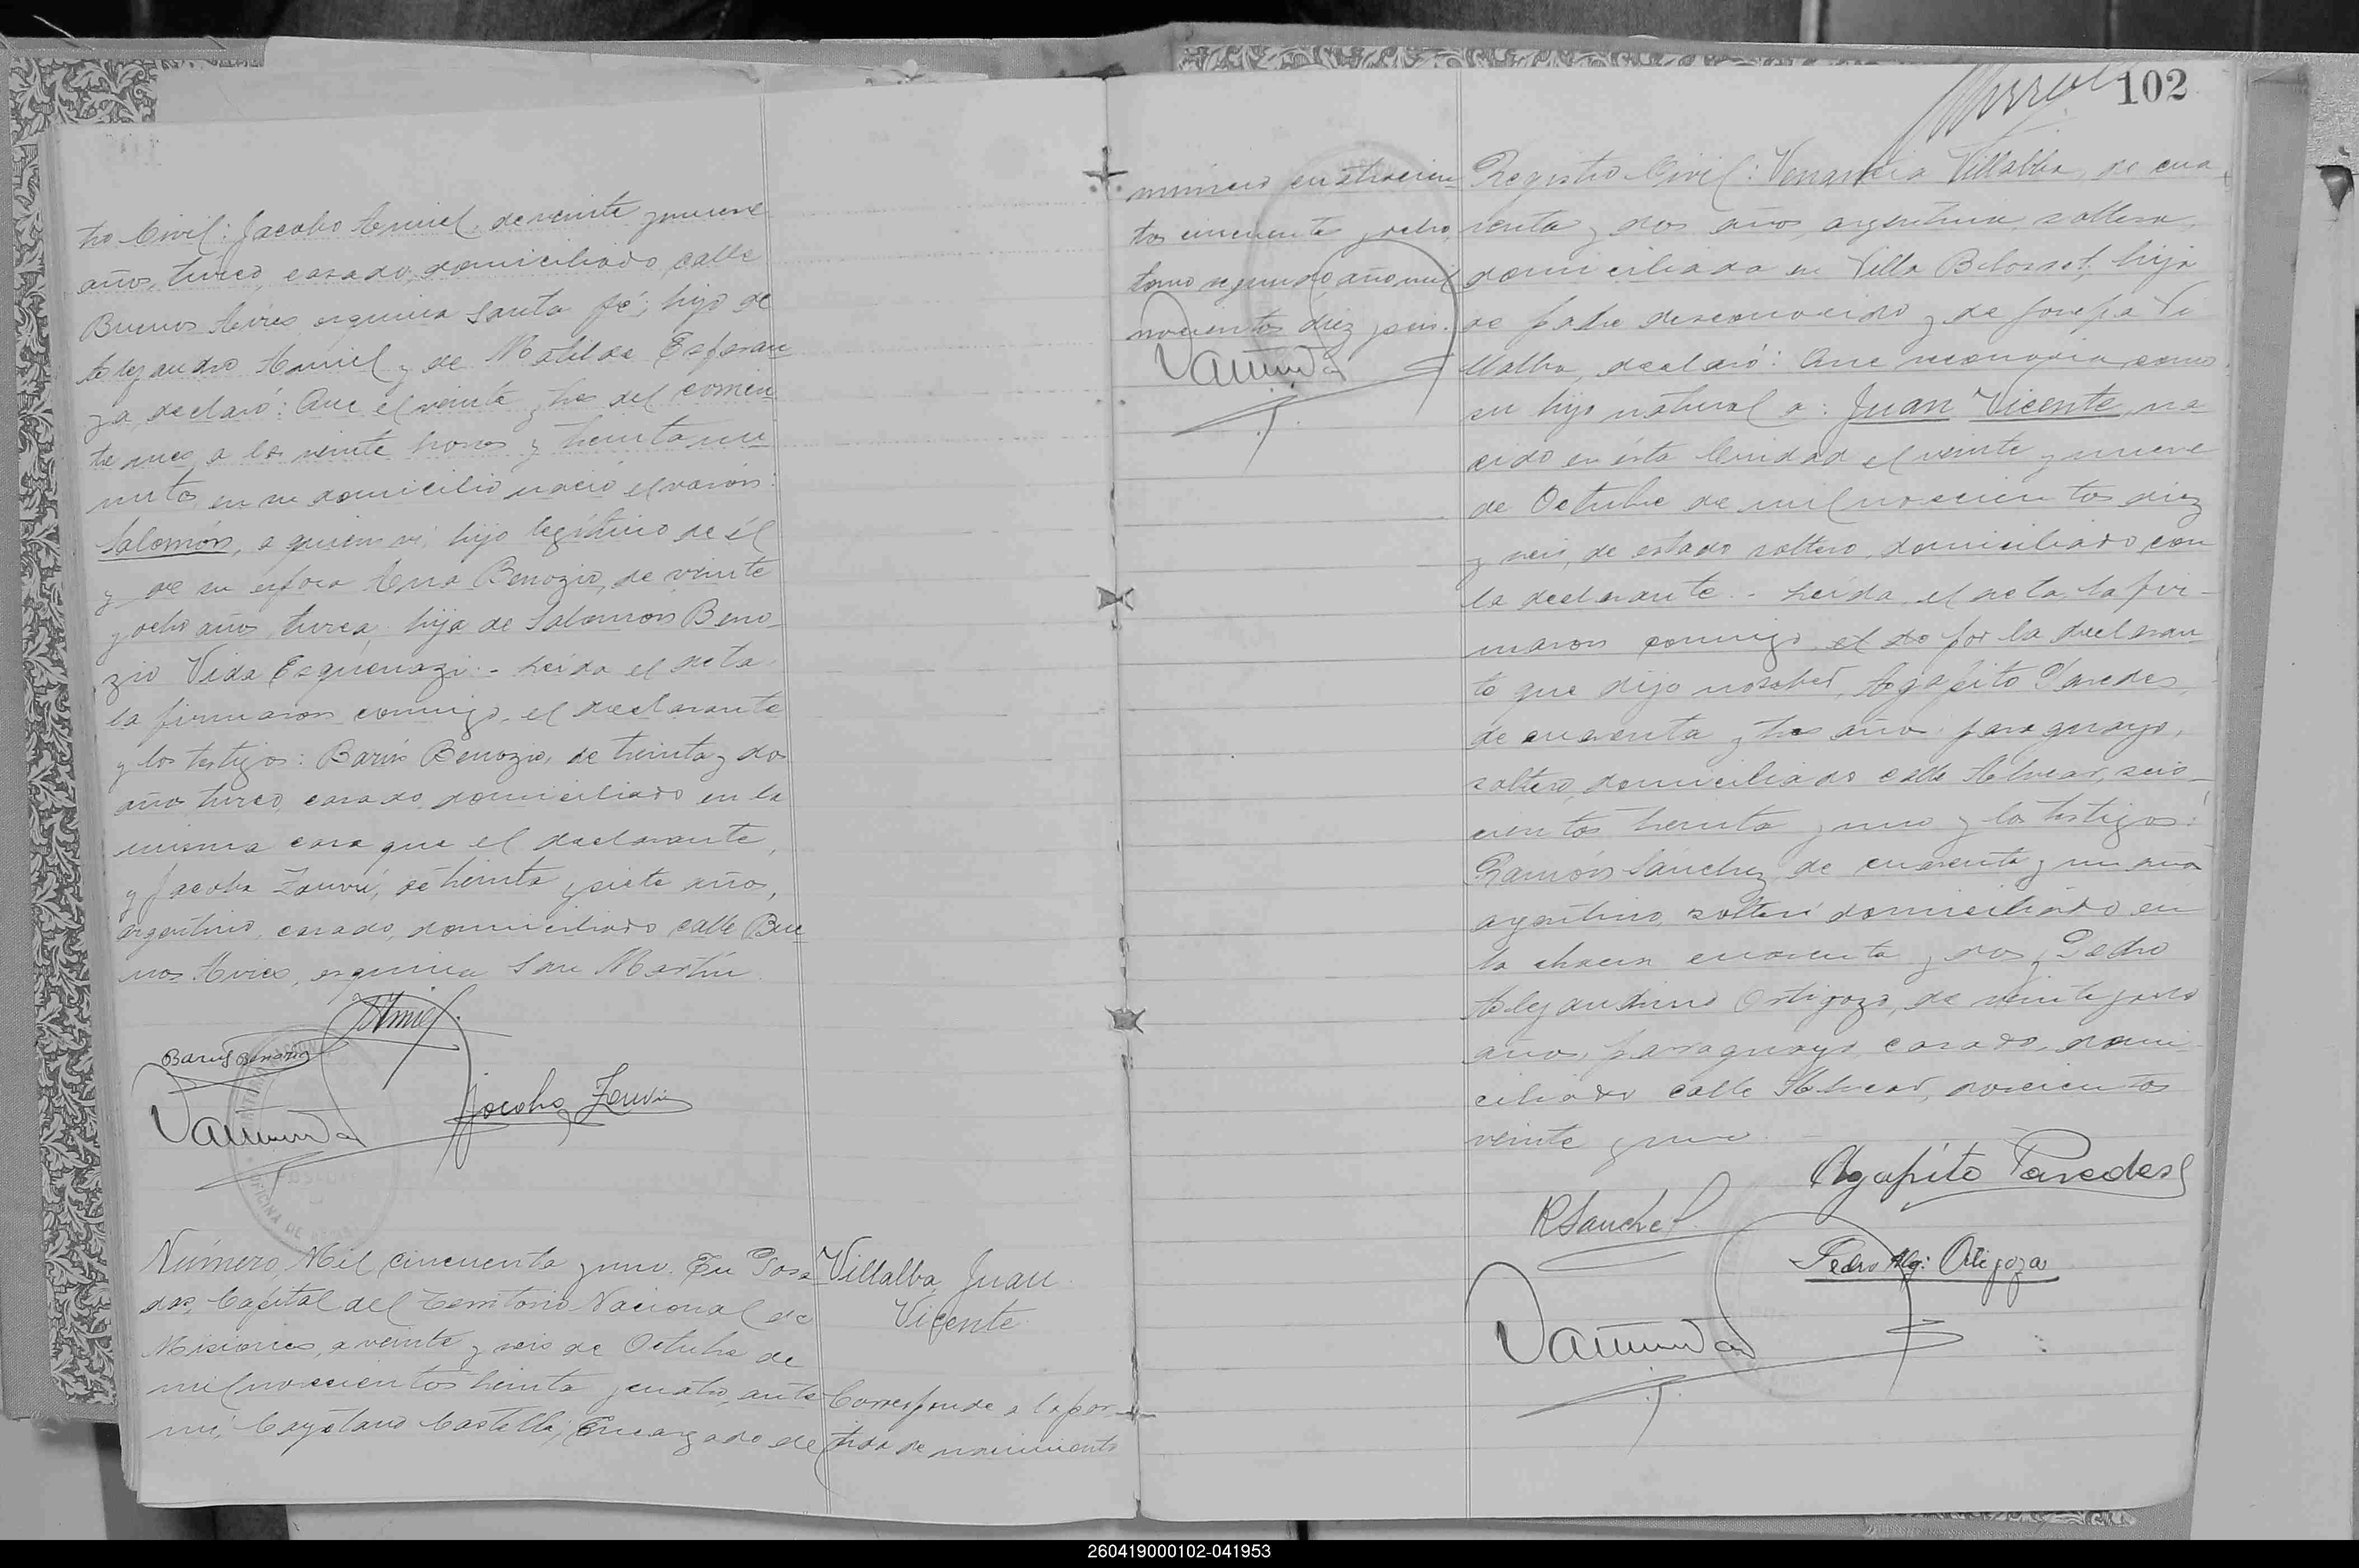 tro Civil: Jacobo Amiel, de veinte y nueve
años, turco, casado, domiciliado calle
Buenos Aires esquina Santa Fé; hijo de
Alejandro Amiel y de Matilde Esperan
za declaró: Que el veinte y tres del corrien
te mes, a las veinte horas y treinta mi
nutos, en su domicilio nació el varón:
Salomón, a quien ví, hijo legítimo de él
y de su esposa Ana Benozio, de veinte
y ocho años, turca, hija de Salomón Beno
zio Vida Esquenazi.- Leída el acta
la firmaron conmigo, el declarante
y los testigos: Barús Benozio, de treinta y dos
años, turco, casado, domiciliado en la
misma casa que el declarante,
y Jacobo Zouvi, de treinta y siete años,
argentino, casado, domiciliado calle Bue
nos Aires, esquina San Martín.
JAmiel
Jacobo Zouvi
Número, Mil cincuenta y uno. En Posa
das, Capital del Territorio Nacional de
Misiones, a veinte y seis de Octubre de
mil novecientos treinta y cuatro, ante
mí, Cayetano Castelli, Encargado del
Villalba, Juan
Vicente
Corresponde a la par
tida de nacimiento
102
número cuatrocien
tos cincuenta y ocho,
tomo segundo, año mil
novecientos diez y seis.
Registro Civil: Venancia Villalba, de cua
renta y dos años, argentina, soltera,
domiciliada en Villa Blosset, hija
de padre desconocido y de Josefa Vi
llalba, declaró: Que reconocía como
su hijo natural a: Juan Vicente, na
cido en ésta Ciudad el veinte y nueve
de Octubre de mil novecientos diez
y seis, de estado soltero, domiciliado con
la declarante.- Leída el acta la fir-
maron conmigo el do por la declaran
te que dijo no saber, Agapito Paredes,
de cuarenta y tres años, paraguayo,
soltero, domiciliado calle Alvear, seis-
cientos treinta y uno y los testigos:
Ramón Sánchez, de cuarenta y un años
argentino, soltero domiciliado en
la chacra cuarenta y dos y Pedro
Alejandrino Ortigoza, de veinte y ocho
años, paraguayo, casado, domi-
ciliado calle Alvear, doscientos
veinte y uno.
Agapito Paredes
RSanchez
Pedro Alej: Ortigoza
260419000102-041953